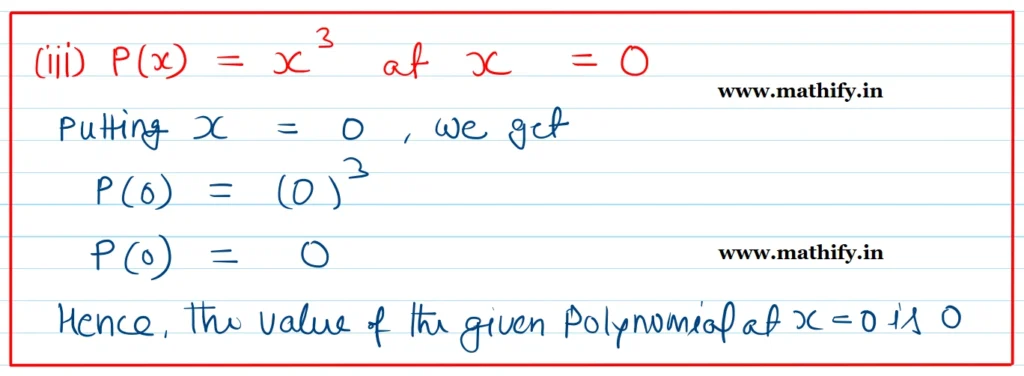 (iii) P(x) = x³ at x = 0
www.mathify.in
Putting x = 0, we get
P(0) = (0)³
P(0) = 0
www.mathify.in
Hence, the value of the given Polynomial at x = 0 is 0